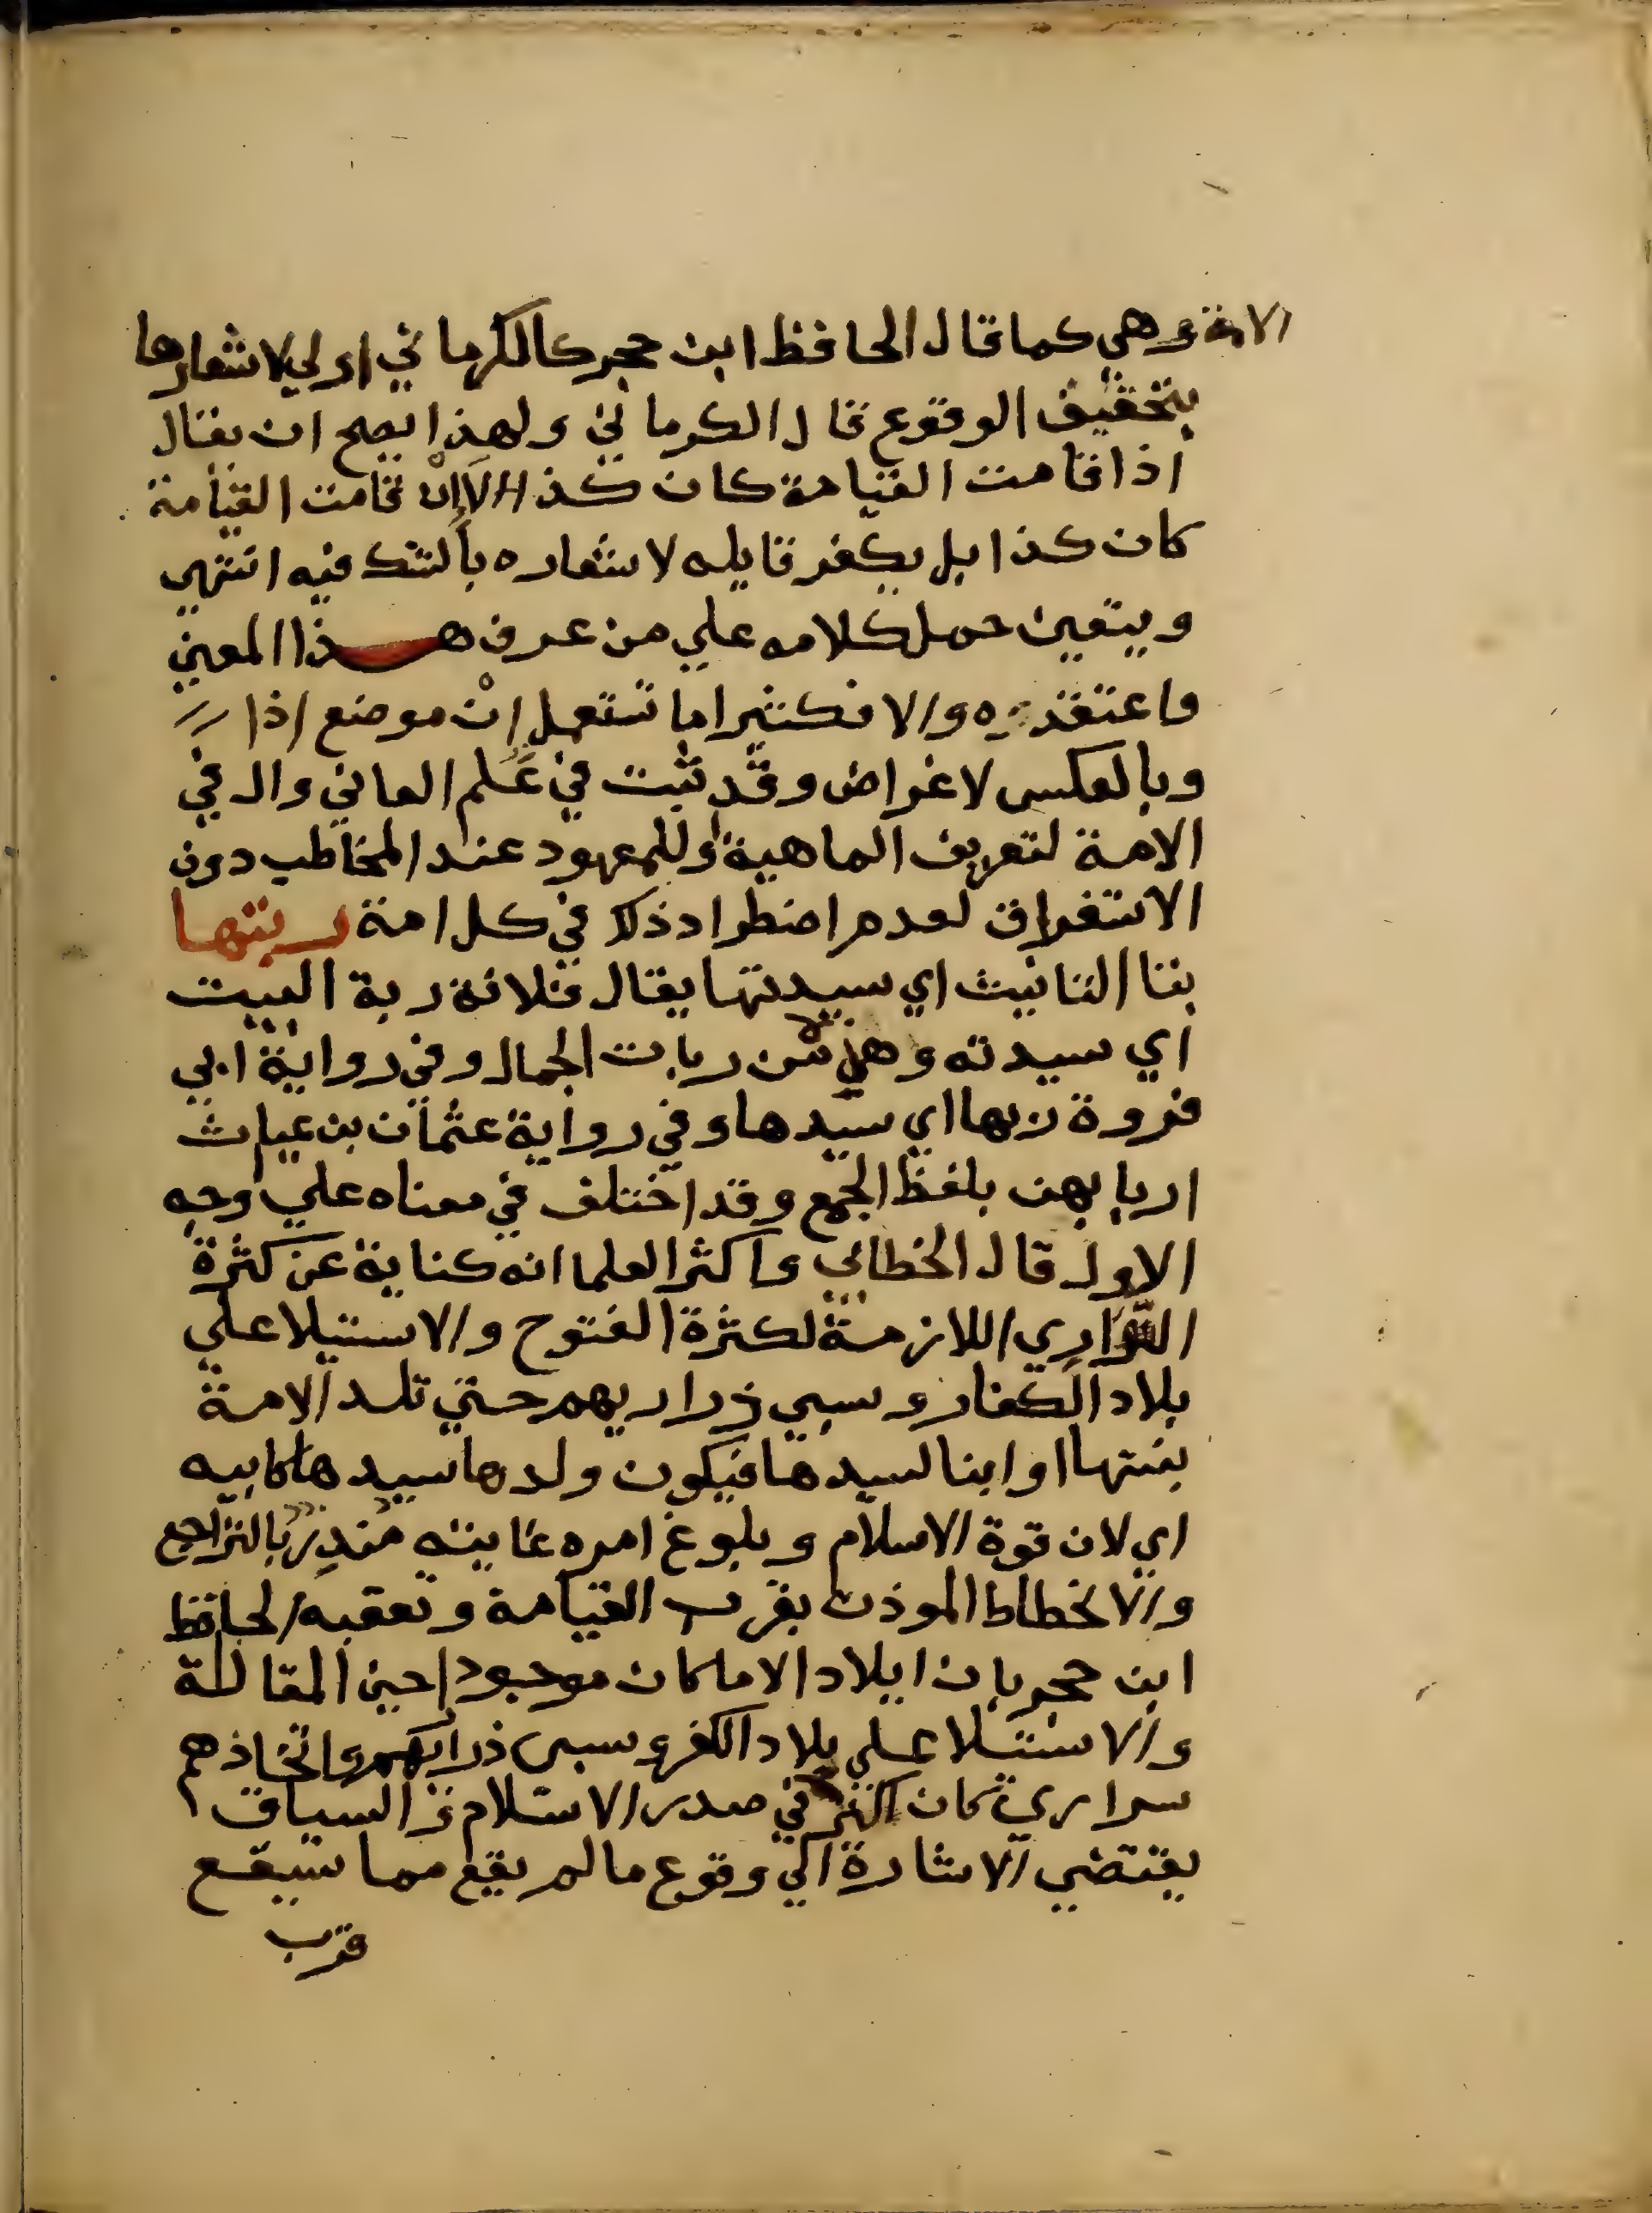 الامة وهي كما قال الحافظ ابن حجر كالكرماني اولي لاشعارها
بتحقيق الوقوع قال الكرماني ولهذا يصح ان يقال
اذا قامت القيامة كان كذا لا ان قامت القيامة
كان كذا بل يكفر قايله لاشعاره بالشك فيه انتهي
ويتعين حمل كلامه علي من عرف هذا المعني
واعتقده والا فكثيرا ما تستعمل ان موضع اذا
وبالعكس لاغراض وقد ثبت في علم المعاني وال في
الامة لتعريف الماهية او للمعهود عند المخاطب دون
الاستغراق لعدم اضطراد ذلك في كل امة ربتها
بتا التانيث اي سيدتها يقال فلانة ربة البيت
اي سيدته وهن من ربات الجمال وفي رواية ابي
فروة ربها اي سيدها وفي رواية عثمان بن غياث
اربابهن بلفظ الجمع وقد اختلف في معناه علي اوجه
الاول قال الخطابي واكثر العلما انه كناية عن كثرة
السراري اللازمة لكثرة الفتوح والاستيلا علي
بلاد الكفار وسبي ذراريهم حتي تلد الامة
بنتها او ابنا لسيدها فيكون ولدها سيدها كابيه
اي لان قوة الاسلام وبلوغ امره غايته منذر بالتراجع
والانحطاط الموذن بقرب القيامة وتعقبه الحافظ
ابن حجر بان ايلاد الاما كان موجودا حين المقالة
والاستيلا علي بلاد الكفر وسبي ذراريهم واتخاذهم
سراري كان اكثر في صدر الاسلام والسياق
يقتضي الاشارة الي وقوع ما لم يقع مما سيقع
قرب